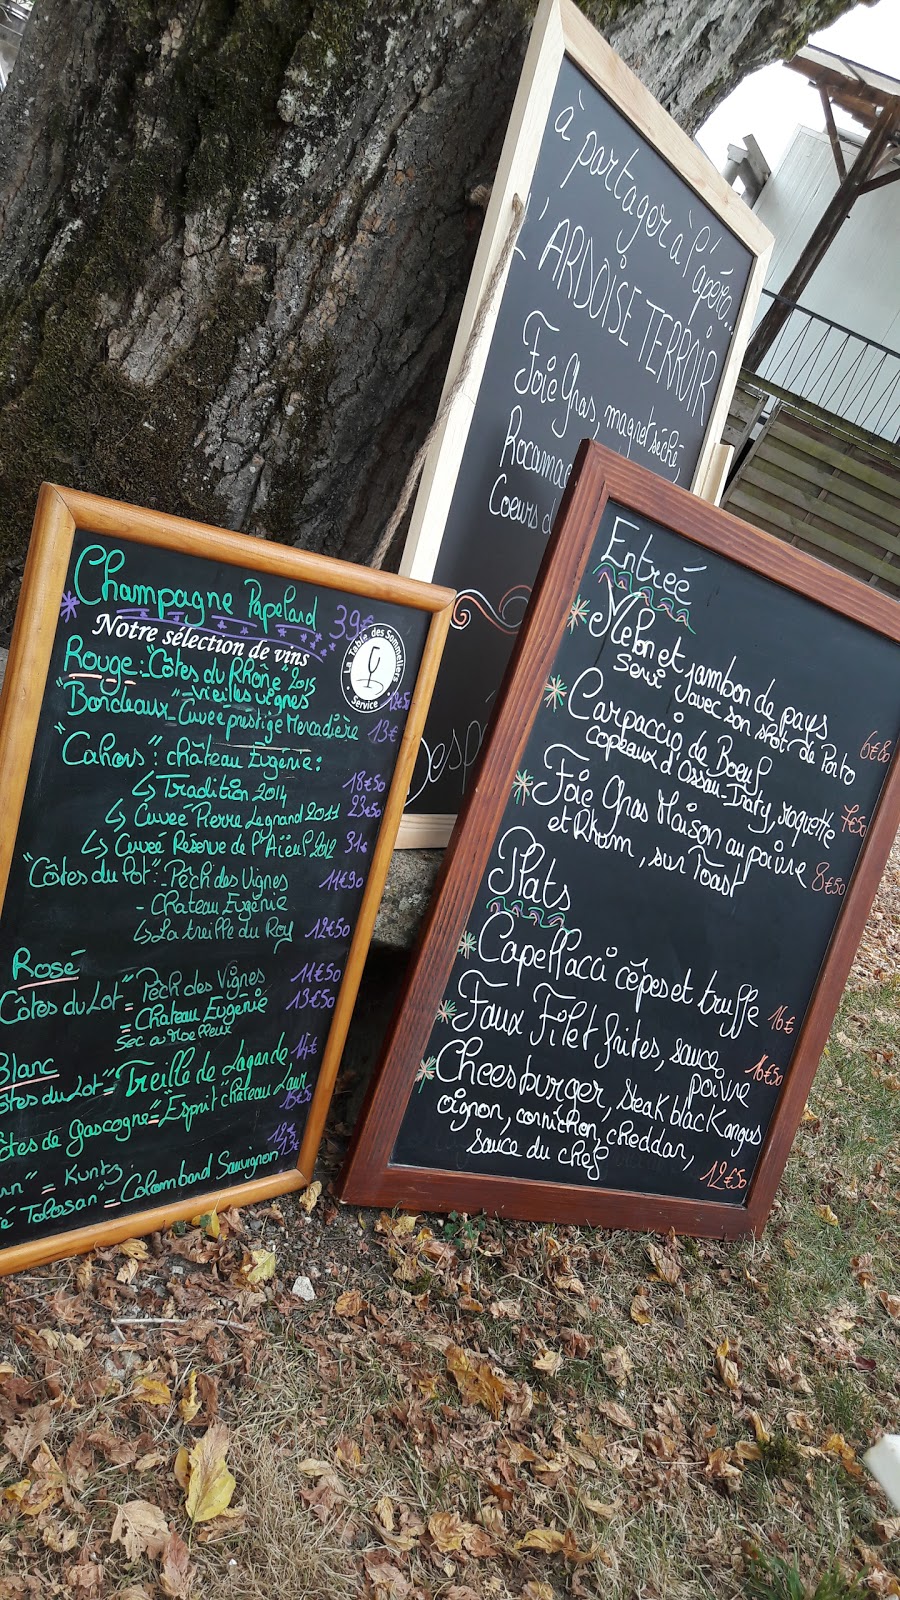 à partager à l'apéro...
L'ARDOISE TERROIR
Foie Gras, magret séché,
Rocama
Coeurs d
Champagne Papelard 39€
Notre sélection de vins
La Table des Sommeliers
Service
Rouge: "Côtes du Rhône" 2015
Vieilles vignes 12€50
"Bordeaux" - Cuvée prestige Mercadière 13€
"Cahors": château Eugénie:
↳ Tradition 2014 18€50
↳ Cuvée Pierre Legrand 2011 23€50
↳ Cuvée Réserve de l'Aïeul 2012 31€
"Côtes du Lot": - Pèch des Vignes 11€90
- Château Eugénie
↳ La treille du Roy 12€50
Rosé
Côtes du Lot" = Pèch des Vignes 11€50
= Chateau Eugénie 13€50
Sec ou Moelleux
Blanc
ôtes du Lot" = Treille de Lagarde 14€
ôtes de Gascogne = Esprit "Château Laur
= Kuntz
é Tolosan" = Colombard Sauvignon 13€
Entrée
Melon et jambon de pays
Servi avec son shot de Porto 6€80
Carpaccio de Boeuf
copeaux d'Ossau-Iraty, roquette 7€50
Foie Gras Maison au poivre
et Rhum, sur Toast 8€50
Plats
Capellacci cêpes et truffe 16€
Faux Filet frites, sauce
poivre 16€50
Cheesburger, steak black angus
oignon, cornichon, cheddar,
sauce du chef 12€50